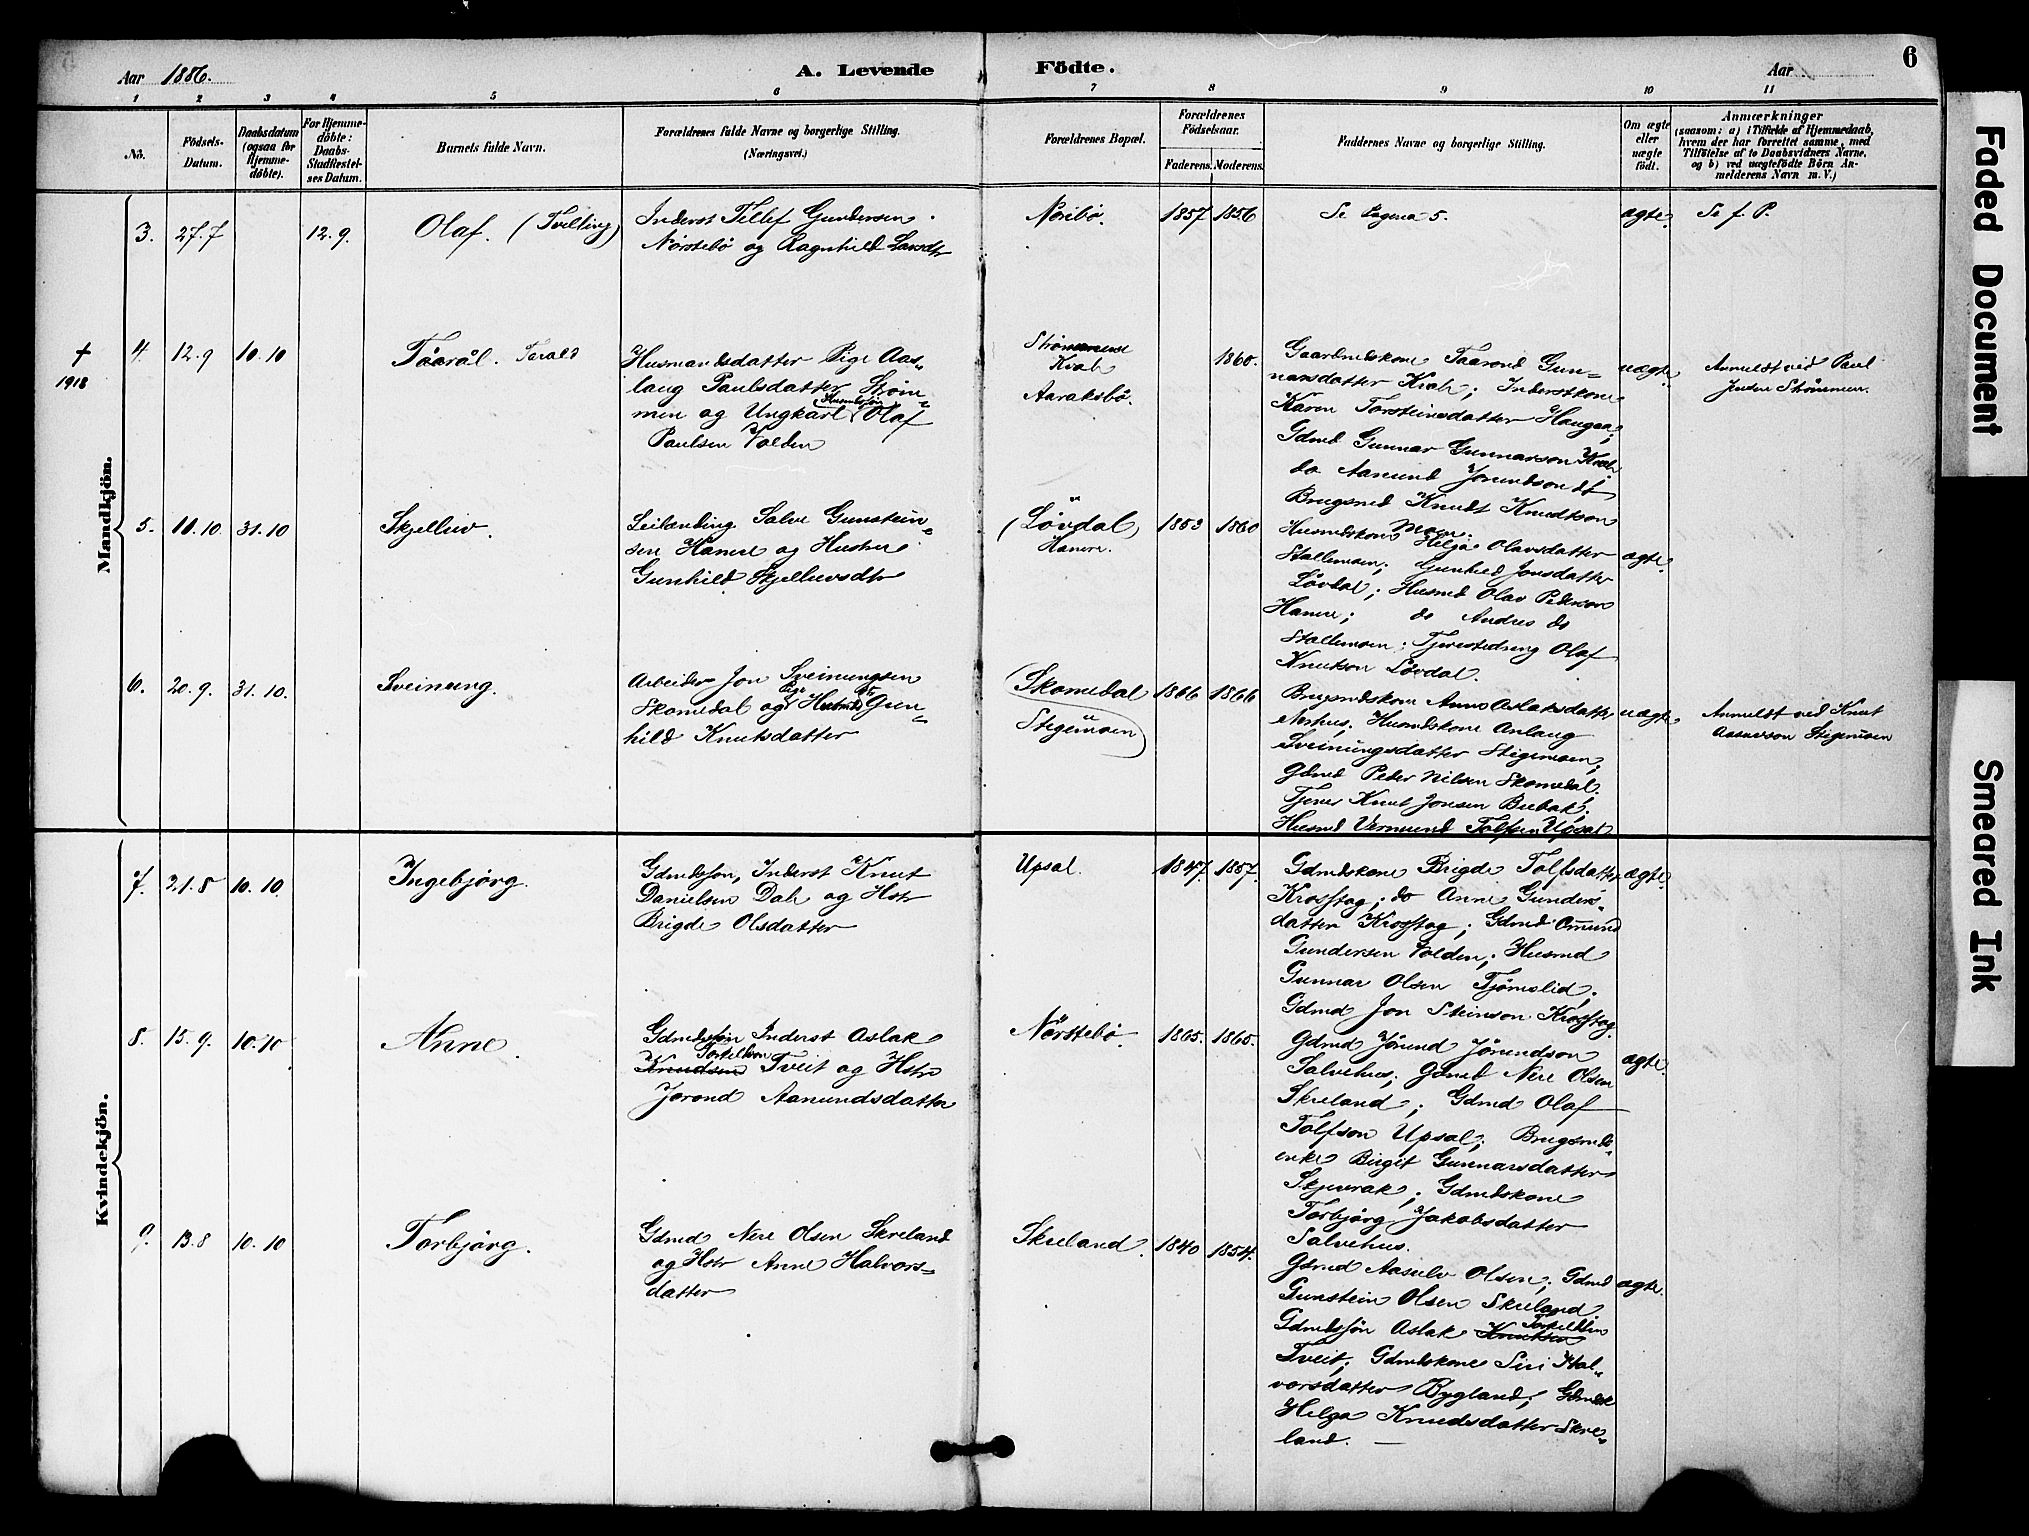 Aar 1886.
A. Levende Födte.
Aar
6
1 2 3 4 5 6 7 8 9 10 11
No.
Födsels-Datum.
Daabsdatum (ogsaa for Hjemme-döbte).
For Hjemme-döbte: Daabs-Stadfæstel-ses Datum.
Barnets fulde Navn.
Forældrenes fulde Navne og borgerlige Stilling.
(Næringsvei.)
Forældrenes Bopæl.
Forældrenes Födselsaar.
Faderens. Moderens.
Faddernes Navne og borgerlige Stilling.
Om ægte eller uægte födt.
Anmærkninger
(saasom: a) i Tilfælde af Hjemmedaab,
hvem der har forrettet samme, med
Tilföielse af to Daabsvidners Navne,
og b) ved uægtefödte Börn An-
melderens Navn m. V.)
Mandkjön.
3. 27.7 12.9. Olaf. (Tvilling)
Inderst Tellef Gundersen
Nörstebö og Ragnhild Larsdtr
Norebö. 1857 1856
Se Pagina 5.
ægte. Se f. P.
† 1918
4. 12.9 10.10 Taarål. Torald
Husmandsdatter Pige Aas-
laug Paulsdatter Ström-
men og Ungkarl Husmdsön Olaf
Paulsen Valden
Strömmene
Kvab
Aaraksbö.
1860.
Gaardmdskone Taarond Gun-
narsdatter Kvab; Inderstkone
Karen Torsteinsdatter Haugaa;
Gdmd Gunnar Gunnarson Kvab
do Aamund Jorundson do
Brugsmd Knudt Knudtson
Moen.
uægte.
Anmeldt ved Paul
Jensen Strömmen.
5. 10.10. 31.10 Skjelluv.
Leilending Salve Gunstein-
sen Hamre og Hustru
Gunhild Skjelluvsdtr
(Lövdal)
Hamre.
1853 1860
Husmdskone Helga Olavsdatter
Stallemoen; Gunhild Jonsdatter
Lövdal; Husmd Olav Pederson
Hamre; do Andres do
Stallemoen; Tjenestedreng Olaf
Knutson Lövdal.
ægte.
6. 20.9. 31.10. Sveinung.
Arbeider Jon Sveinungsen
Skomedal og Pige Husmdsdtr Gun-
hild Knutsdatter
(Skomedal
Stegemoen)
1866 1866
Brugsmdskone Anne Aslaksdatter
Neshus, Husmdskone Anlaug
Sveinungsdatter Stigemoen;
Gdmd Peder Nilsen Skomedal.
Tjener Knut Jonsen Bubak;
Husmd Vermund Tolfsen Upsal
uægte.
Anmeldt ved Knut
Aasuvson Stegemoen
Kvindekjön.
7. 21.8 10.10. Ingebjörg.
Gdmdssön, Inderst Knut
Danielsen Dale og Hstr
Brigde Olsdatter
Upsal. 1847. 1857.
Gdmdskone Brigde Tolfsdatter
Krosstag; do Anne Gunders-
datter Krosstog; Gdmd Omund
Gundersen Valden; Husmd
Gunnar Olsen Tjömslid.
Gdmd Jon Steinson Krosstog.
ægte.
8. 15.9. 10.10 Anne.
Gdmdssön Inderst Aslak
Knudsen Torkelson Tveit og Hstr
Jorond Aamundsdatter
Nörstebö. 1865. 1865.
Gdmd Jörund Jörundson
Salvehus; Gdmd Nere Olsen
Skreland; Gdmd Olaf
Tolfson Upsal; Brugsmds-
enke Birgit Gunnarsdatter
Skjevrak; Gdmdskone
Torbjörg Jakobsdatter
Salvehus.
ægte.
9. 13.8 10.10 Torbjörg.
Gdmd Nere Olsen Skreland
og Hstr Anne Halvors-
datter
Skreland. 1840 1854.
Gdmd Aasulv Olsen; Gdmd
Gunstein Olsen Skreland
Gdmdssön Aslak Knutsen Torkelsen
Tveit; Gdmdskone Siri Hal-
vorsdatter Bygland; Gdmdsk
Helga Knudsdatter Skre-
land.
ægte.
Faded Document
Smeared Ink